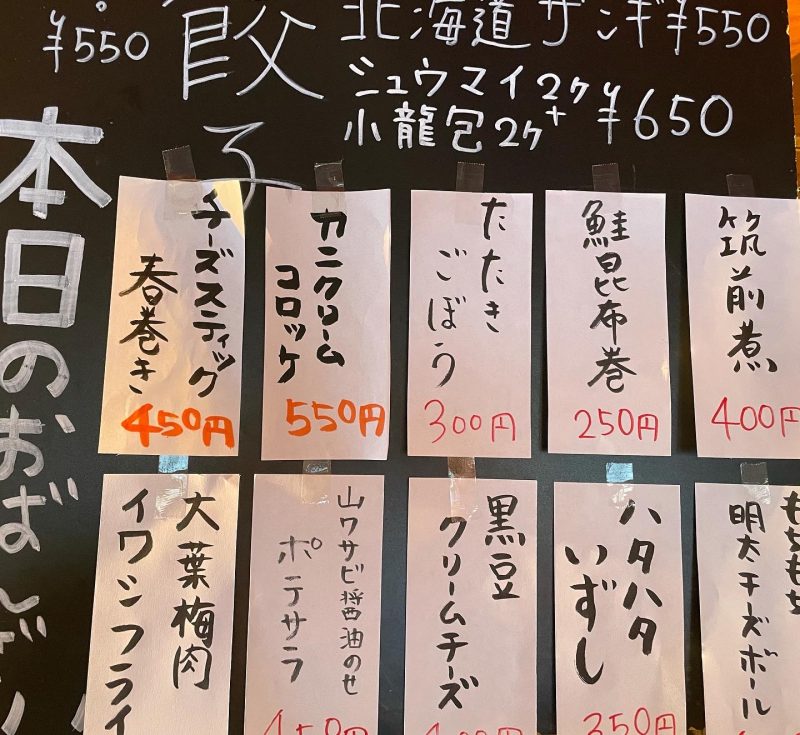 ¥550
餃子
北海道ザンギ¥550
シュウマイ2ヶ+
小龍包2ヶ
¥650
本日のおばんざい
筑前煮
400円
鮭昆布巻
250円
たたき
ごぼう
300円
カニクリーム
コロッケ
550円
チーズスティック
春巻き
450円
もちもち
明太チーズボール
ハタハタ
いずし
350円
黒豆
クリームチーズ
400円
山ワサビ醤油のせ
ポテサラ
450円
大葉梅肉
イワシフライ